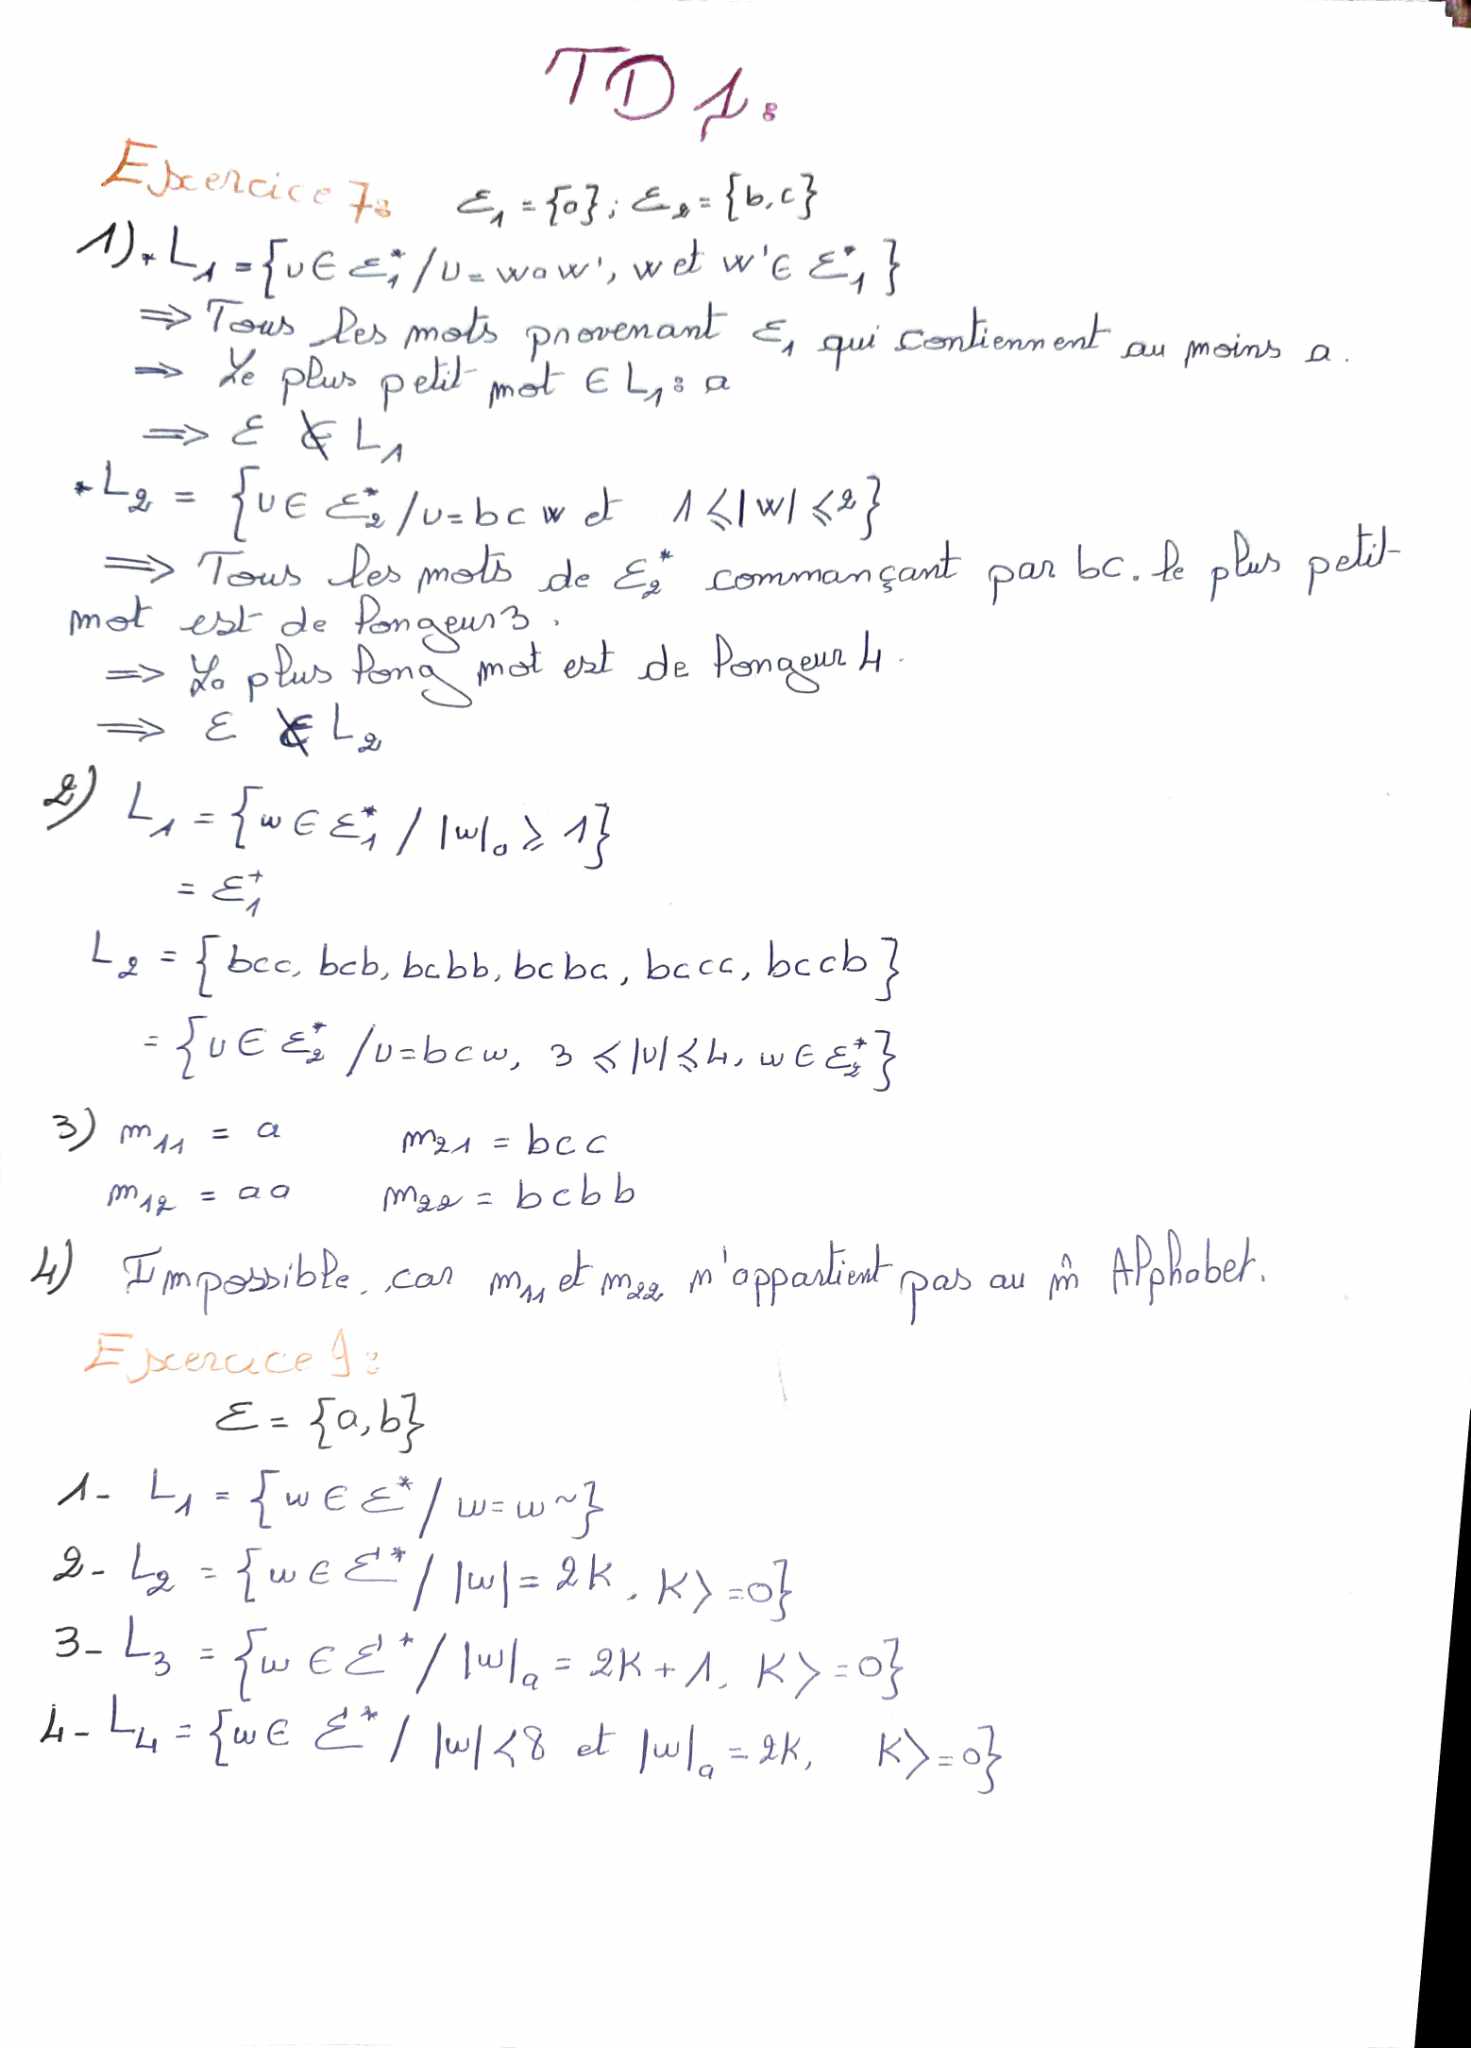 TD 1:
Exercice 7: Ɛ₁ = {a}; Ɛ₂ = {b,c}
1) * L₁ = {u ∈ Ɛ₁* / u = waw', w et w' ∈ Ɛ₁*}
⇒ Tous les mots provenant Ɛ₁ qui contiennent au moins a.
⇒ Le plus petit mot ∈ L₁: a
⇒ Ɛ ∉ L₁
* L₂ = {u ∈ Ɛ₂* / u = bcw et 1 ⩽ |w| ⩽ 2}
⇒ Tous les mots de Ɛ₂* commançant par bc. le plus petit
mot est de longeur 3.
⇒ Le plus long mot est de longeur 4.
⇒ Ɛ ∉ L₂
2) L₁ = {w ∈ Ɛ₁* / |w|ₐ ⩾ 1}
= Ɛ₁⁺
L₂ = {bcc, bcb, bcbb, bcbc, bccc, bccb}
= {u ∈ Ɛ₂* / u = bcw, 3 ⩽ |u| ⩽ 4, w ∈ Ɛ₂*}
3) m₁₁ = a m₂₁ = bcc
m₁₂ = aa m₂₂ = bcbb
4) Impossible, car m₁₁ et m₂₂ n'appartient pas au m̂ Alphabet.
Exercice 9:
Ɛ = {a,b}
1- L₁ = {w ∈ Ɛ* / w = w~}
2- L₂ = {w ∈ Ɛ* / |w| = 2K, K >= 0}
3- L₃ = {w ∈ Ɛ⁺ / |w|ₐ = 2K + 1, K >= 0}
4- L₄ = {w ∈ Ɛ* / |w| < 8 et |w|ₐ = 2K, K >= 0}